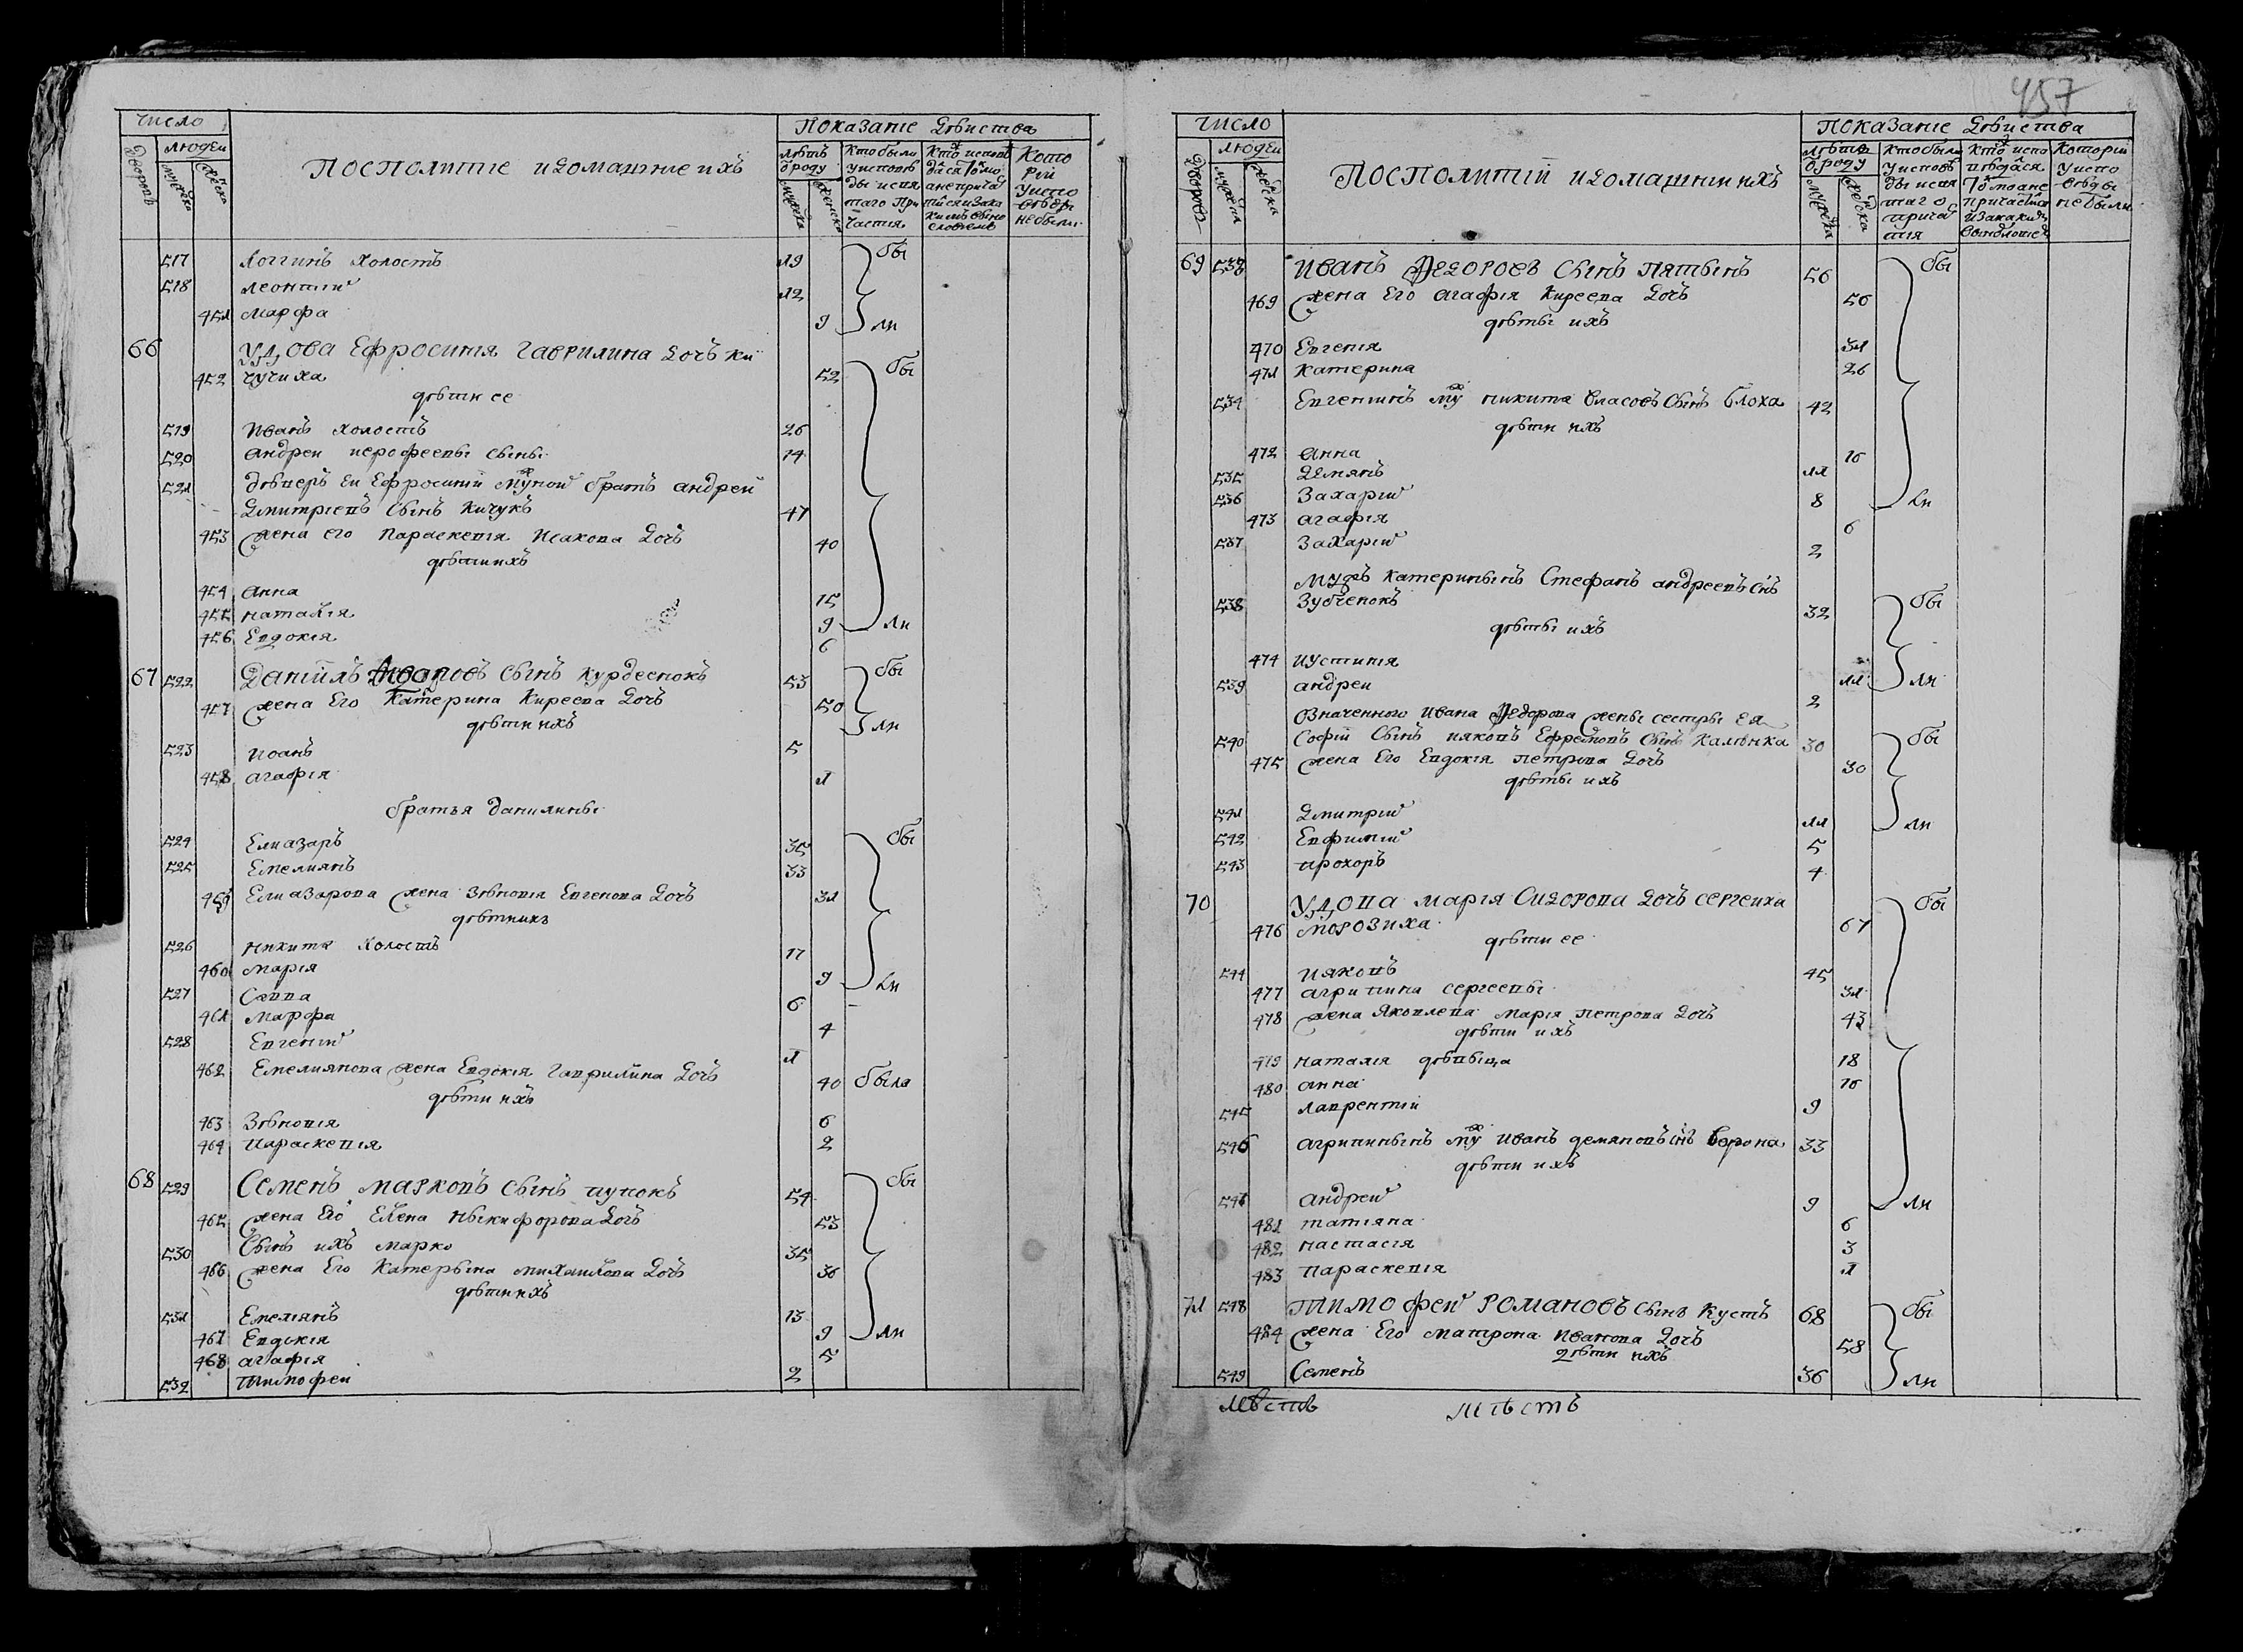 457
Число
Дворовъ
людеи
мужеска
женска
Посполитіе идомашние ихъ
Показаніе Дѣиства
лѣтъ
ѿроду
мужеска
женска
Кто были
уисповѣ
ды исвя
таго При
частія
Кто исповѣ
дался токмо
анепричас
тился иза
какимъ вино
словіемъ
Кото
рій
уиспо
вѣди
небыли
517 Логгинъ холостъ 19 бы
518 леонтій 12
451 марфа 9 ли
66 Удова Ефросинія Гаврилина дочъ ки
452 чучиха 52 бы
дѣти ее
519 Иванъ холостъ 26
520 андреи иерофеевы сыны 14
521 дѣверъ еи Ефросиніи мужной братъ андреи
Дмитріевъ сынъ кичукъ 47
453 жена его Параскевія Исакова дочъ 40
дѣти ихъ
454 анна 15
455 наталія 9 ли
456 Евдокія 6
67 522 Даніилъ Ивановъ сынъ курдесюкъ 53 бы
457 жена Его Катерина Киреева дочъ 50
дѣти ихъ ли
523 иоанъ 5
458 агафія 1
братья данилины
524 Елиазаръ 35 бы
525 Емелиянъ 33
459 Елиазарова жена Зѣновія Евгенова дочъ 31
дѣти ихъ
526 никита холостъ 17
460 марія 9 ли
527 Савва 6
461 марфа 4
528 Евгеній 1
462 Емелиянова жена Евдокія Гаврилина дочъ 40 была
дѣти ихъ
463 Зѣновія 6
464 параскевія 2
68 529 Семенъ марковъ сынъ пупокъ 54 бы
465 жена Его Елена ныкифорова дочъ 53
530 Сынъ ихъ марко 35
466 жена Его Катерына михаилова дочъ 36
дѣти ихъ
531 Емелянъ 13
467 Евдокія 9 ли
468 агафія 5
532 тимофеи 2
Число
Дворовъ
людеи
мужеска
женска
Посполитіи идомашнии ихъ
Показаніе Дѣиства
лѣтъ
ѿроду
мужеска
женска
Кто были
уисповѣ
ды исвя
таго
причас
тія
Кто испо
вѣдался
токмо ане
причастил
иза какимъ
винословіемъ
Которіи
уиспо
вѣды
небыли
69 533 Иванъ Федоровъ сынъ пятынъ 56 бы
469 жена Его агафія Киреева дочъ 50
дѣты ихъ
470 Евгенія 31
471 Катерина 26
534 Евгенинъ муж никита Власовъ сынъ блоха 42
дѣти ихъ
472 анна 16
535 Демянъ 11
536 Захарій 8 ли
473 агафія 6
537 Захарій 2
Мужъ Катерининъ Стефанъ андреевъ снъ
538 Зубченокъ 32 бы
дѣты ихъ
474 иустинія 11 ли
539 андреи 2
Означенного ивана Федорова жены сестры ея
540 Софіи сынъ ияковъ Ефремовъ сынъ Калѣнка 30 бы
475 жена Его Евдокія петрова дочъ 30
дѣты ихъ
541 Дмитрій 11 ли
542 Евфимій 5
543 прохоръ 4
70 Удова марія Сидорова дочъ сергеиха бы
476 морозиха 67
дѣти ее
544 ияковъ 45
477 агрипина сергеевы 31
478 жена Яковлева марія петрова дочъ 43
дѣти ихъ
479 наталія дѣвыца 18
480 анна 16
545 лаврентіи 9
546 агрипининъ муж иванъ демяновъ снъ ворона 33
дѣти ихъ
547 андреи 9 ли
481 татіяна 6
482 настасія 3
483 параскевія 1
71 548 Тимофеи Романовъ сынъ кустъ 68 бы
484 жена Его матрона иванова дочъ 58
дѣти ихъ
549 Семенъ 36 ли